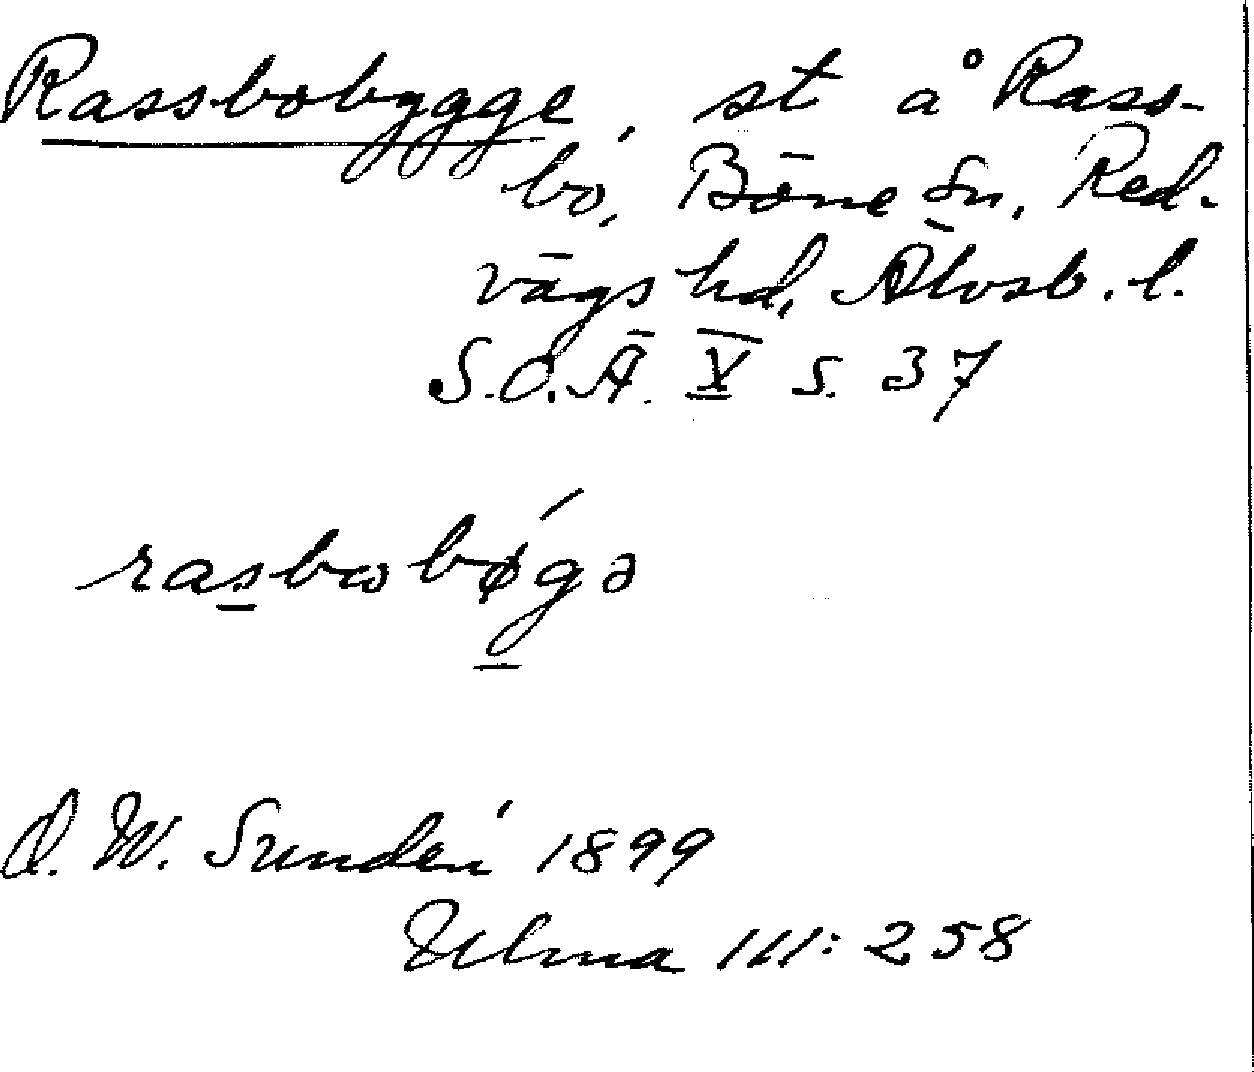 Rassbobygge, st å Rass-
bo, Böne sn, Red-
vägs hd, Älvsb. l.
S.O.Ä. X s. 37
rasbωbǿgə
D. W. Sundén 1899
Ulma III: 258